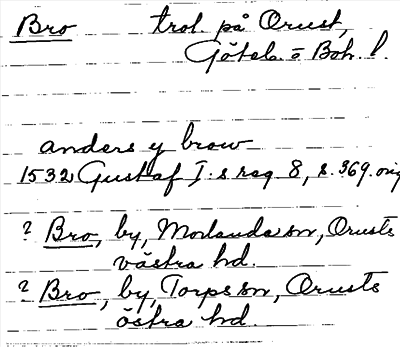 Bro trol. på Orust,
Götebs. o Boh. l.
anders y brow
1532 Gustaf I:s reg. 8, s. 369. orig
? Bro, by, Morlanda sn, Orusts
västra hd.
? Bro, by, Torps sn, Orusts
östra hd.